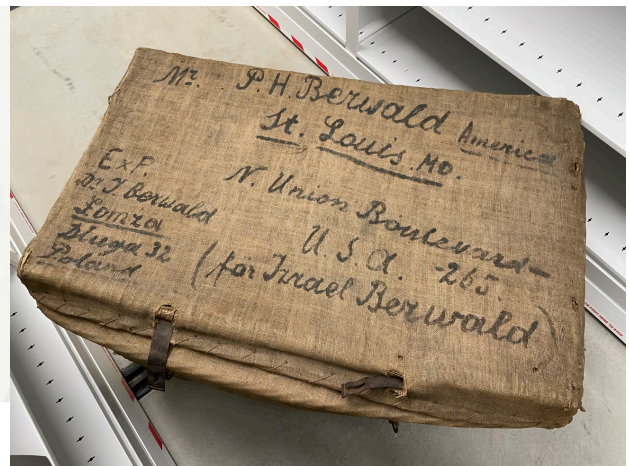 Mr. P. H. Berwald America
St. Louis. Mo.
N. Union Boulevard -
U. S. A. -265.
(för Izrael Berwald)
Exp.
Dr. I Berwald
Łomża
Długa 32
Poland